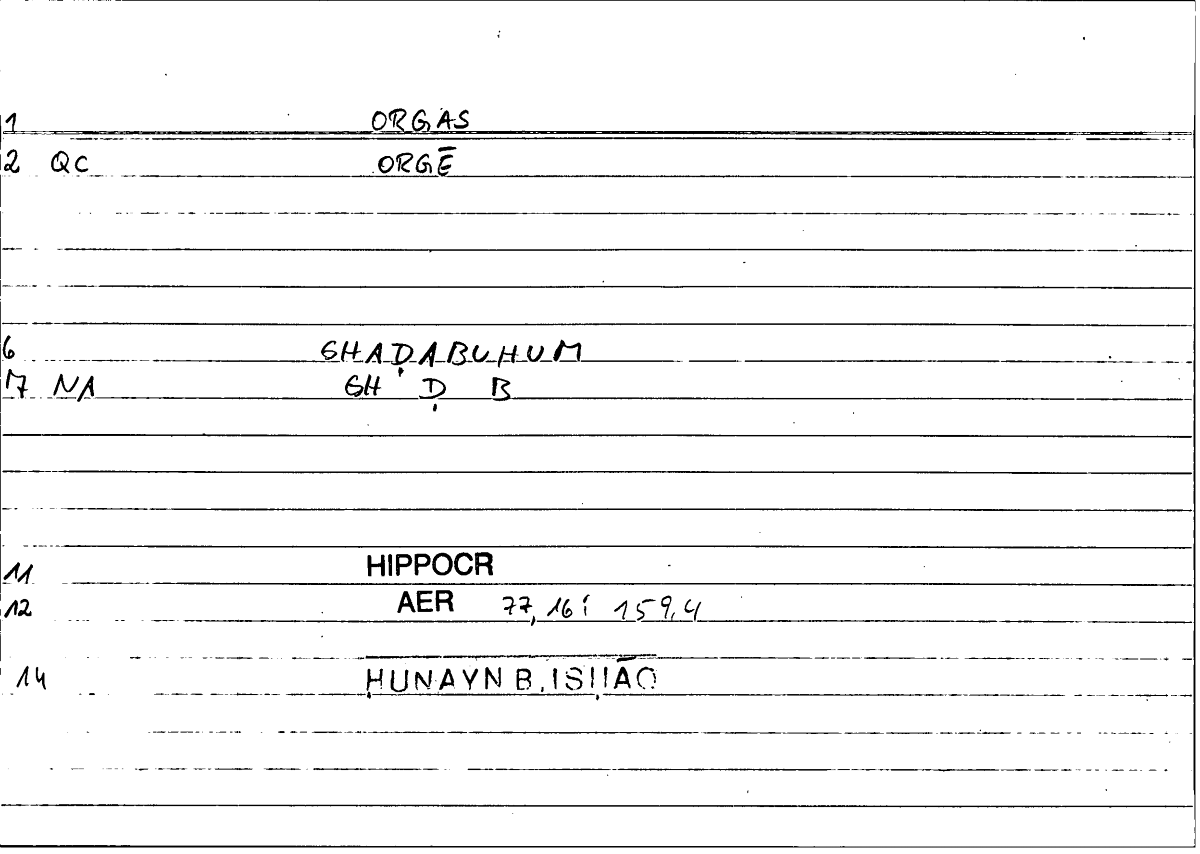 1 ORGAS
2 QC ORGĒ
6 GHAḌABUHUM
17 NA GH Ḍ B
11 HIPPOCR
12 AER 77,16; 159,4
14 ḤUNAYN B.ISḤĀQ